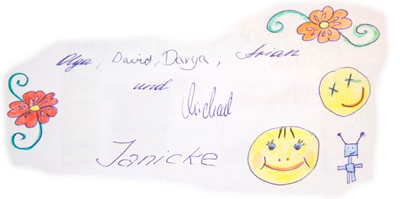 Olga, David, Darya, Arian
und
Michael
Janicke